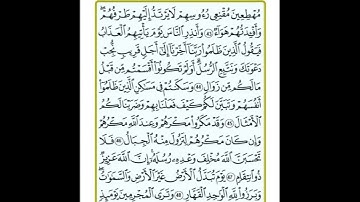 مُهْطِعِينَ مُقْنِعِي رُءُوسِهِمْ لَا يَرْتَدُّ إِلَيْهِمْ طَرْفُهُمْ
وَأَفْـِٔدَتُهُمْ هَوَآءٌ ٤٣ وَأَنذِرِ ٱلنَّاسَ يَوْمَ يَأْتِيهِمُ ٱلْعَذَابُ
فَيَقُولُ ٱلَّذِينَ ظَلَمُوا۟ رَبَّنَآ أَخِّرْنَآ إِلَىٰٓ أَجَلٍ قَرِيبٍ نُّجِبْ
دَعْوَتَكَ وَنَتَّبِعِ ٱلرُّسُلَ أَوَلَمْ تَكُونُوٓا۟ أَقْسَمْتُم مِّن قَبْلُ
مَا لَكُم مِّن زَوَالٍ ٤٤ وَسَكَنتُمْ فِى مَسَٰكِنِ ٱلَّذِينَ ظَلَمُوٓا۟
أَنفُسَهُمْ وَتَبَيَّنَ لَكُمْ كَيْفَ فَعَلْنَا بِهِمْ وَضَرَبْنَا لَكُمُ
ٱلْأَمْثَالَ ٤٥ وَقَدْ مَكَرُوا۟ مَكْرَهُمْ وَعِندَ ٱللَّهِ مَكْرُهُمْ
وَإِن كَانَ مَكْرُهُمْ لِتَزُولَ مِنْهُ ٱلْجِبَالُ ٤٦ فَلَا
تَحْسَبَنَّ ٱللَّهَ مُخْلِفَ وَعْدِهِۦ رُسُلَهُۥٓ إِنَّ ٱللَّهَ عَزِيزٌ
ذُو ٱنتِقَامٍ ٤٧ يَوْمَ تُبَدَّلُ ٱلْأَرْضُ غَيْرَ ٱلْأَرْضِ وَٱلسَّمَٰوَٰتُ
وَبَرَزُوا۟ لِلَّهِ ٱلْوَٰحِدِ ٱلْقَهَّارِ ٤٨ وَتَرَى ٱلْمُجْرِمِينَ يَوْمَئِذٍ